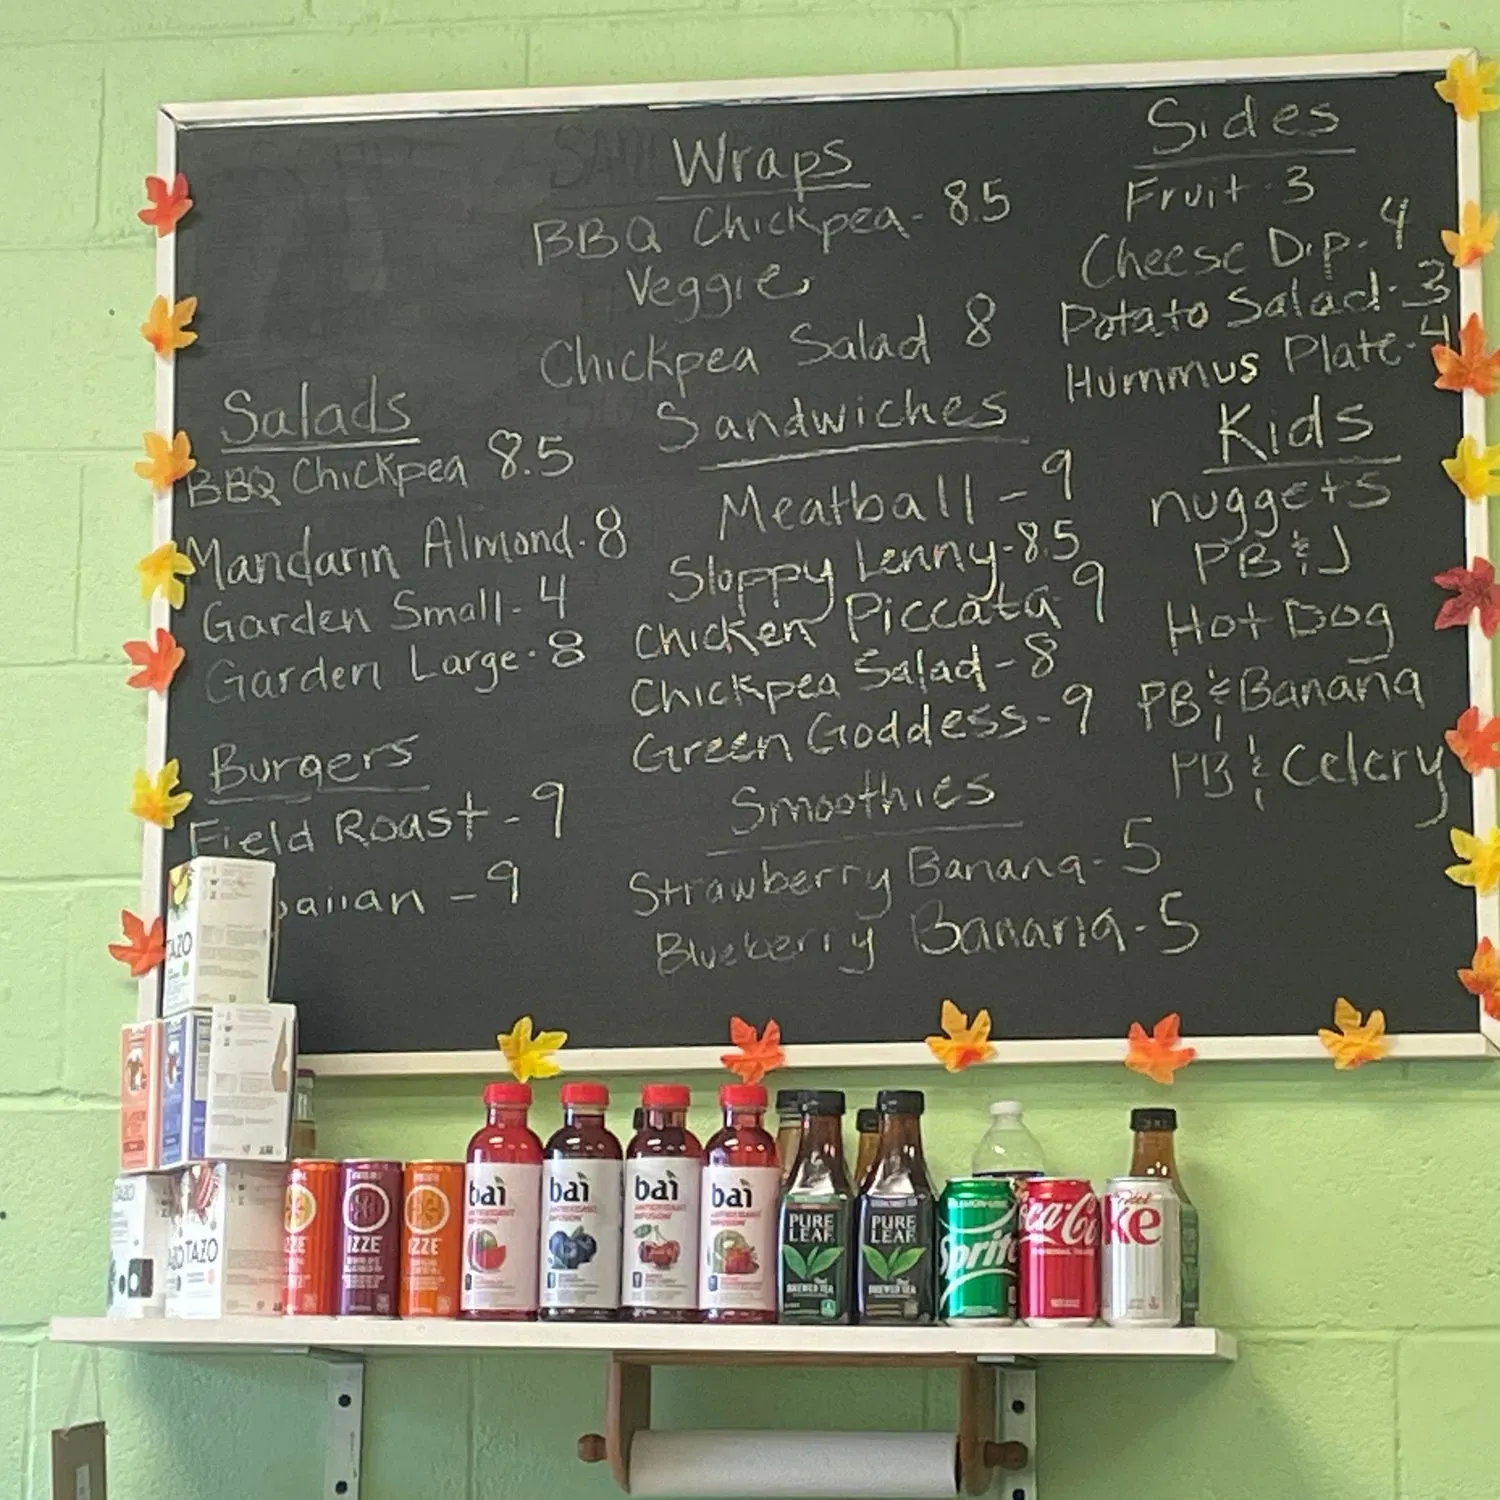 Wraps
BBQ Chickpea - 8.5
Veggie
Chickpea Salad 8
Sides
Fruit - 3
Cheese Dip - 4
Potato Salad - 3
Hummus Plate - 4
Salads
BBQ Chickpea 8.5
Mandarin Almond - 8
Garden Small - 4
Garden Large - 8
Burgers
Field Roast - 9
aiian - 9
Sandwiches
Meatball - 9
Sloppy Lenny - 8.5
Chicken Piccata 9
Chickpea Salad - 8
Green Goddess - 9
Smoothies
Strawberry Banana - 5
Blueberry Banana - 5
Kids
nuggets
PB & J
Hot Dog
PB & Banana
PB & Celery
TAZO
TAZO
TAZO
IZZE
IZZE
IZZE
bai
bai
bai
bai
PURE
LEAF
BREWED TEA
PURE
LEAF
BREWED TEA
Sprite
Coca-Co
ke